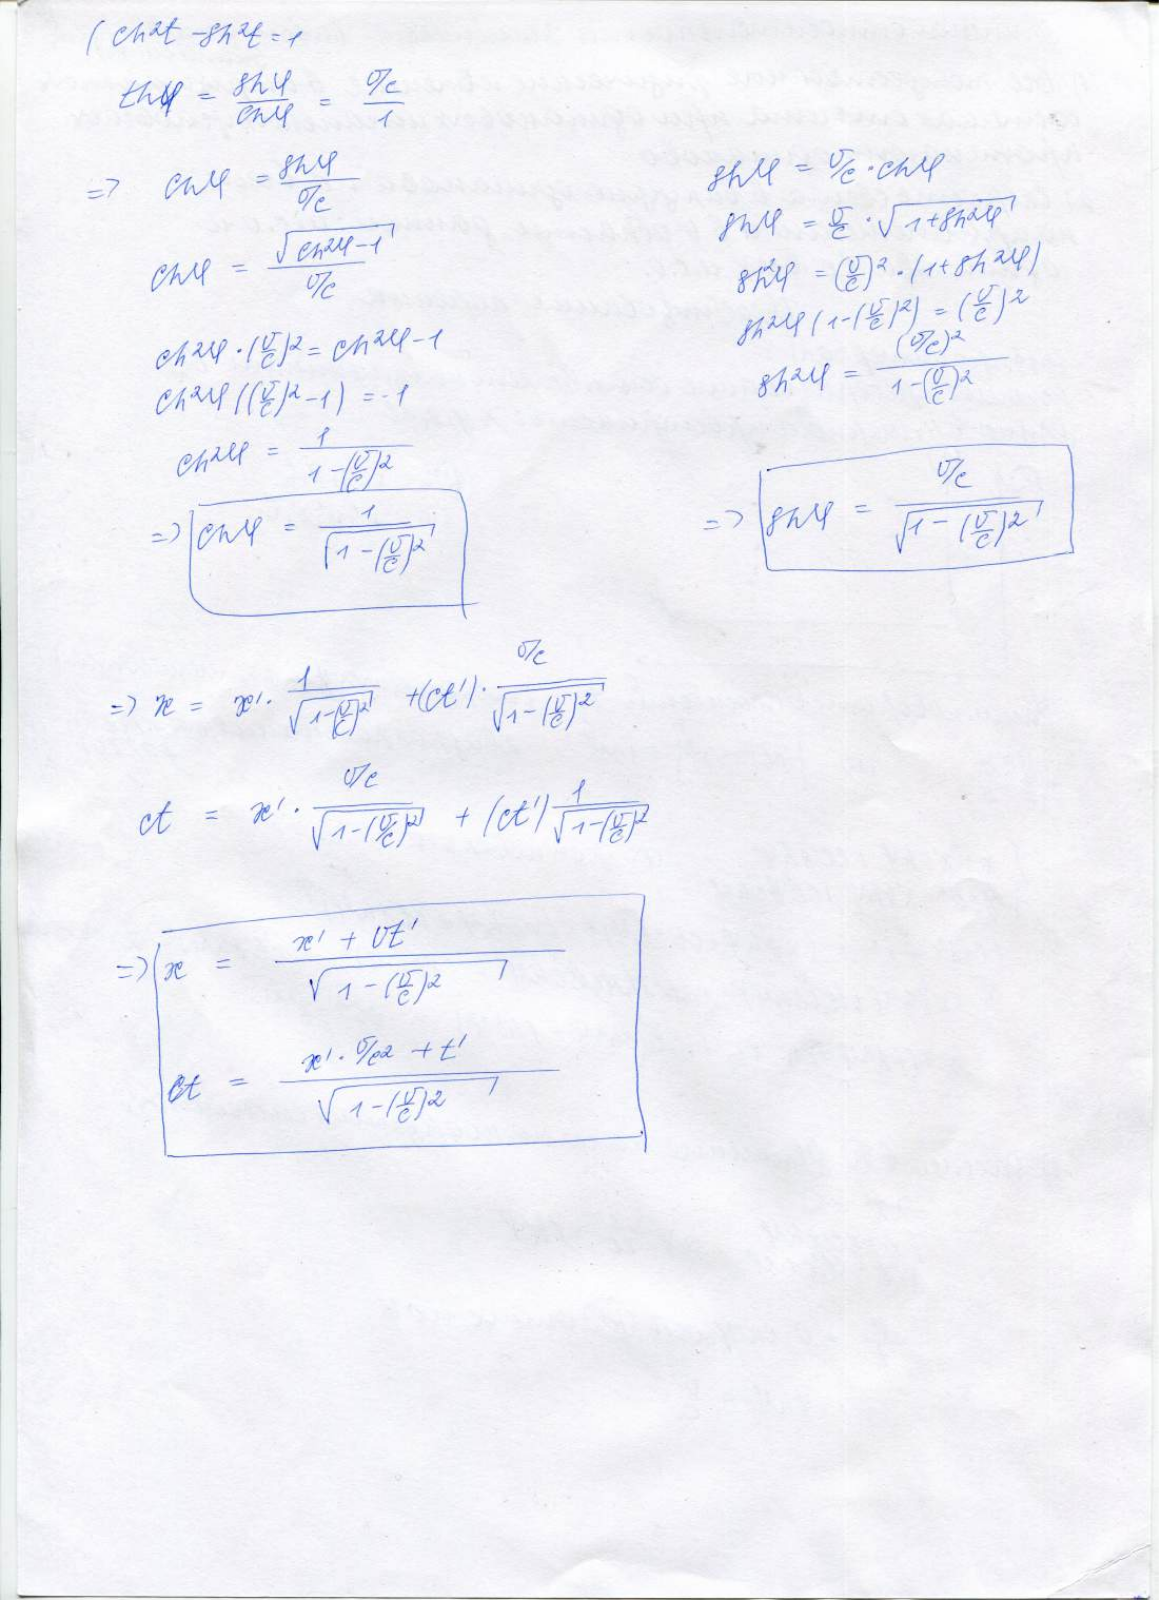 ( ch²t - sh²t = 1
thφ = shφ/chφ = (v/c)/1
=> chφ = shφ/(v/c)
chφ = √(ch²φ-1)/(v/c)
ch²φ·(v/c)² = ch²φ-1
ch²φ((v/c)²-1) = -1
ch²φ = 1/(1-(v/c)²)
=> chφ = 1/√(1-(v/c)²)
shφ = v/c · chφ
shφ = v/c · √(1+sh²φ)
sh²φ = (v/c)² · (1+sh²φ)
sh²φ(1-(v/c)²) = (v/c)²
sh²φ = (v/c)²/(1-(v/c)²)
=> shφ = (v/c)/√(1-(v/c)²)
=> x = x'· 1/√(1-(v/c)²) + (ct')· (v/c)/√(1-(v/c)²)
ct = x'· (v/c)/√(1-(v/c)²) + (ct') 1/√(1-(v/c)²)
=> x = (x' + vt')/√(1-(v/c)²)
ct = (x'· v/c² + t')/√(1-(v/c)²)